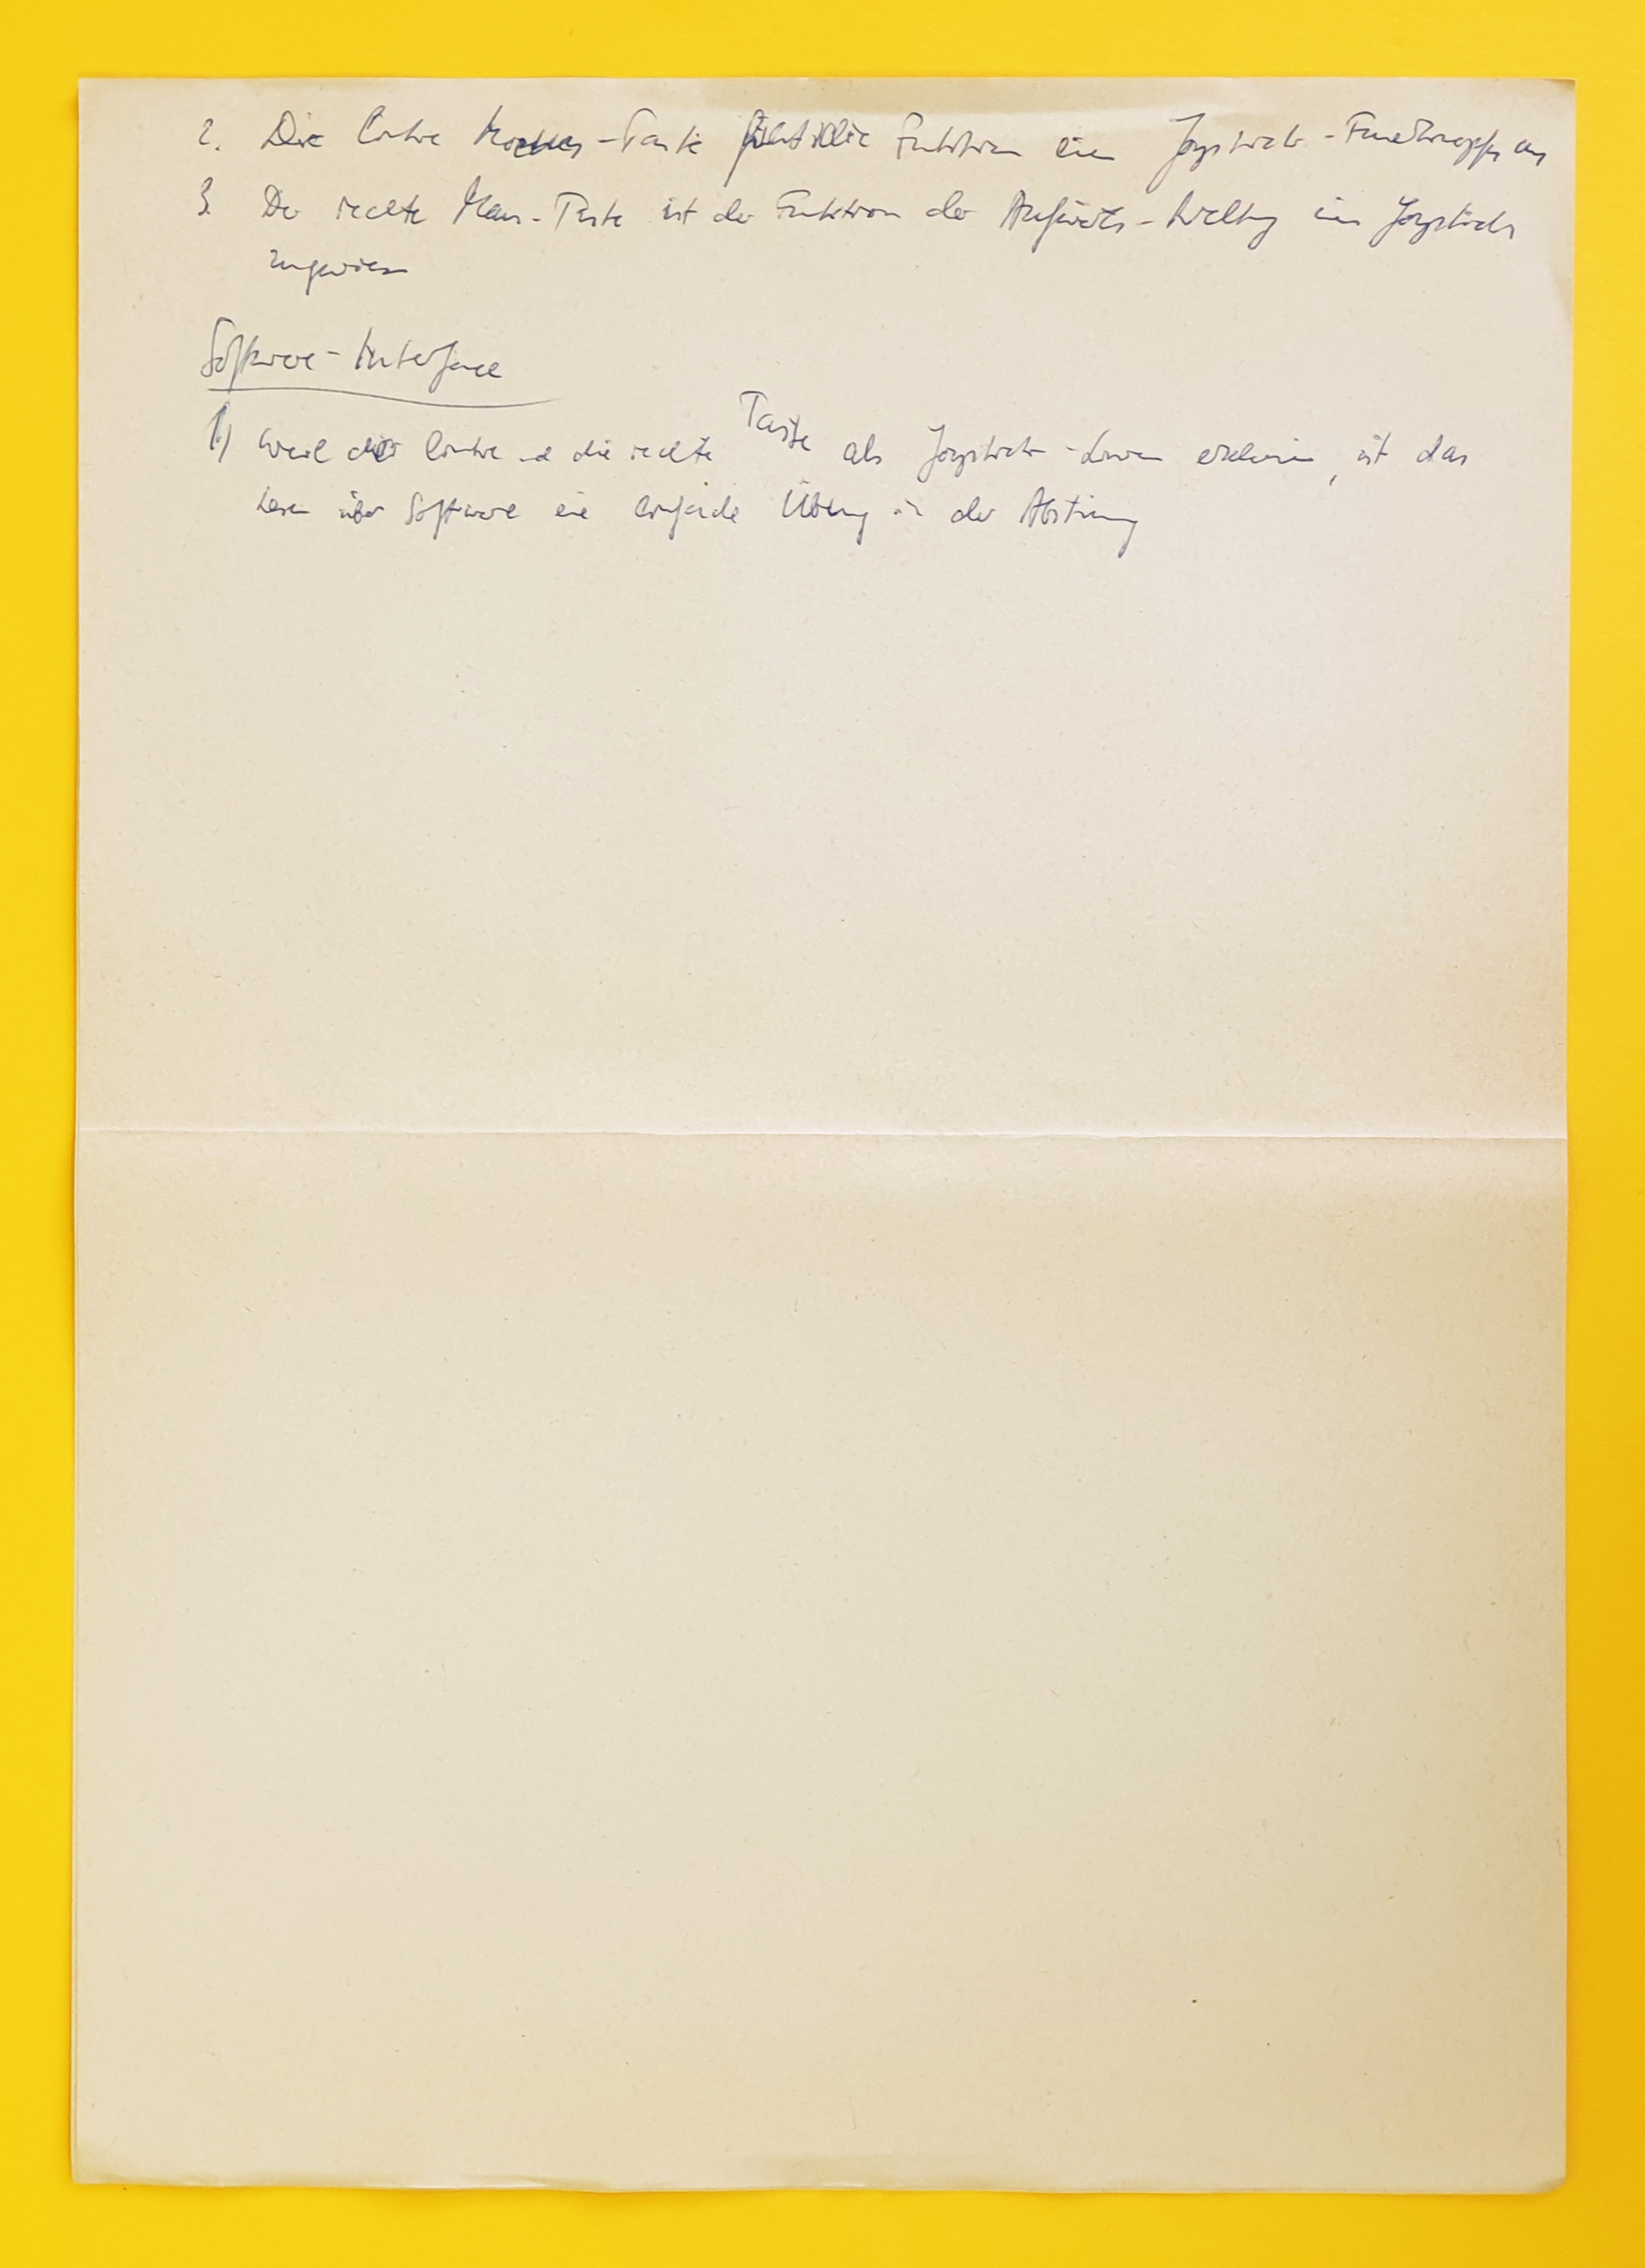 2. Die linke Maus-Taste führt die Funktion eines Joystick-Feuerknopfes aus
3. Der rechte Maus-Taste ist der Funktion der Aufwärts-Richtung eines Joysticks
zugewiesen
Software-Interface
1) Weil die linke und die rechte Taste als Joystick-Linien erscheinen, ist das
Lesen über Software eine einfache Übung in der